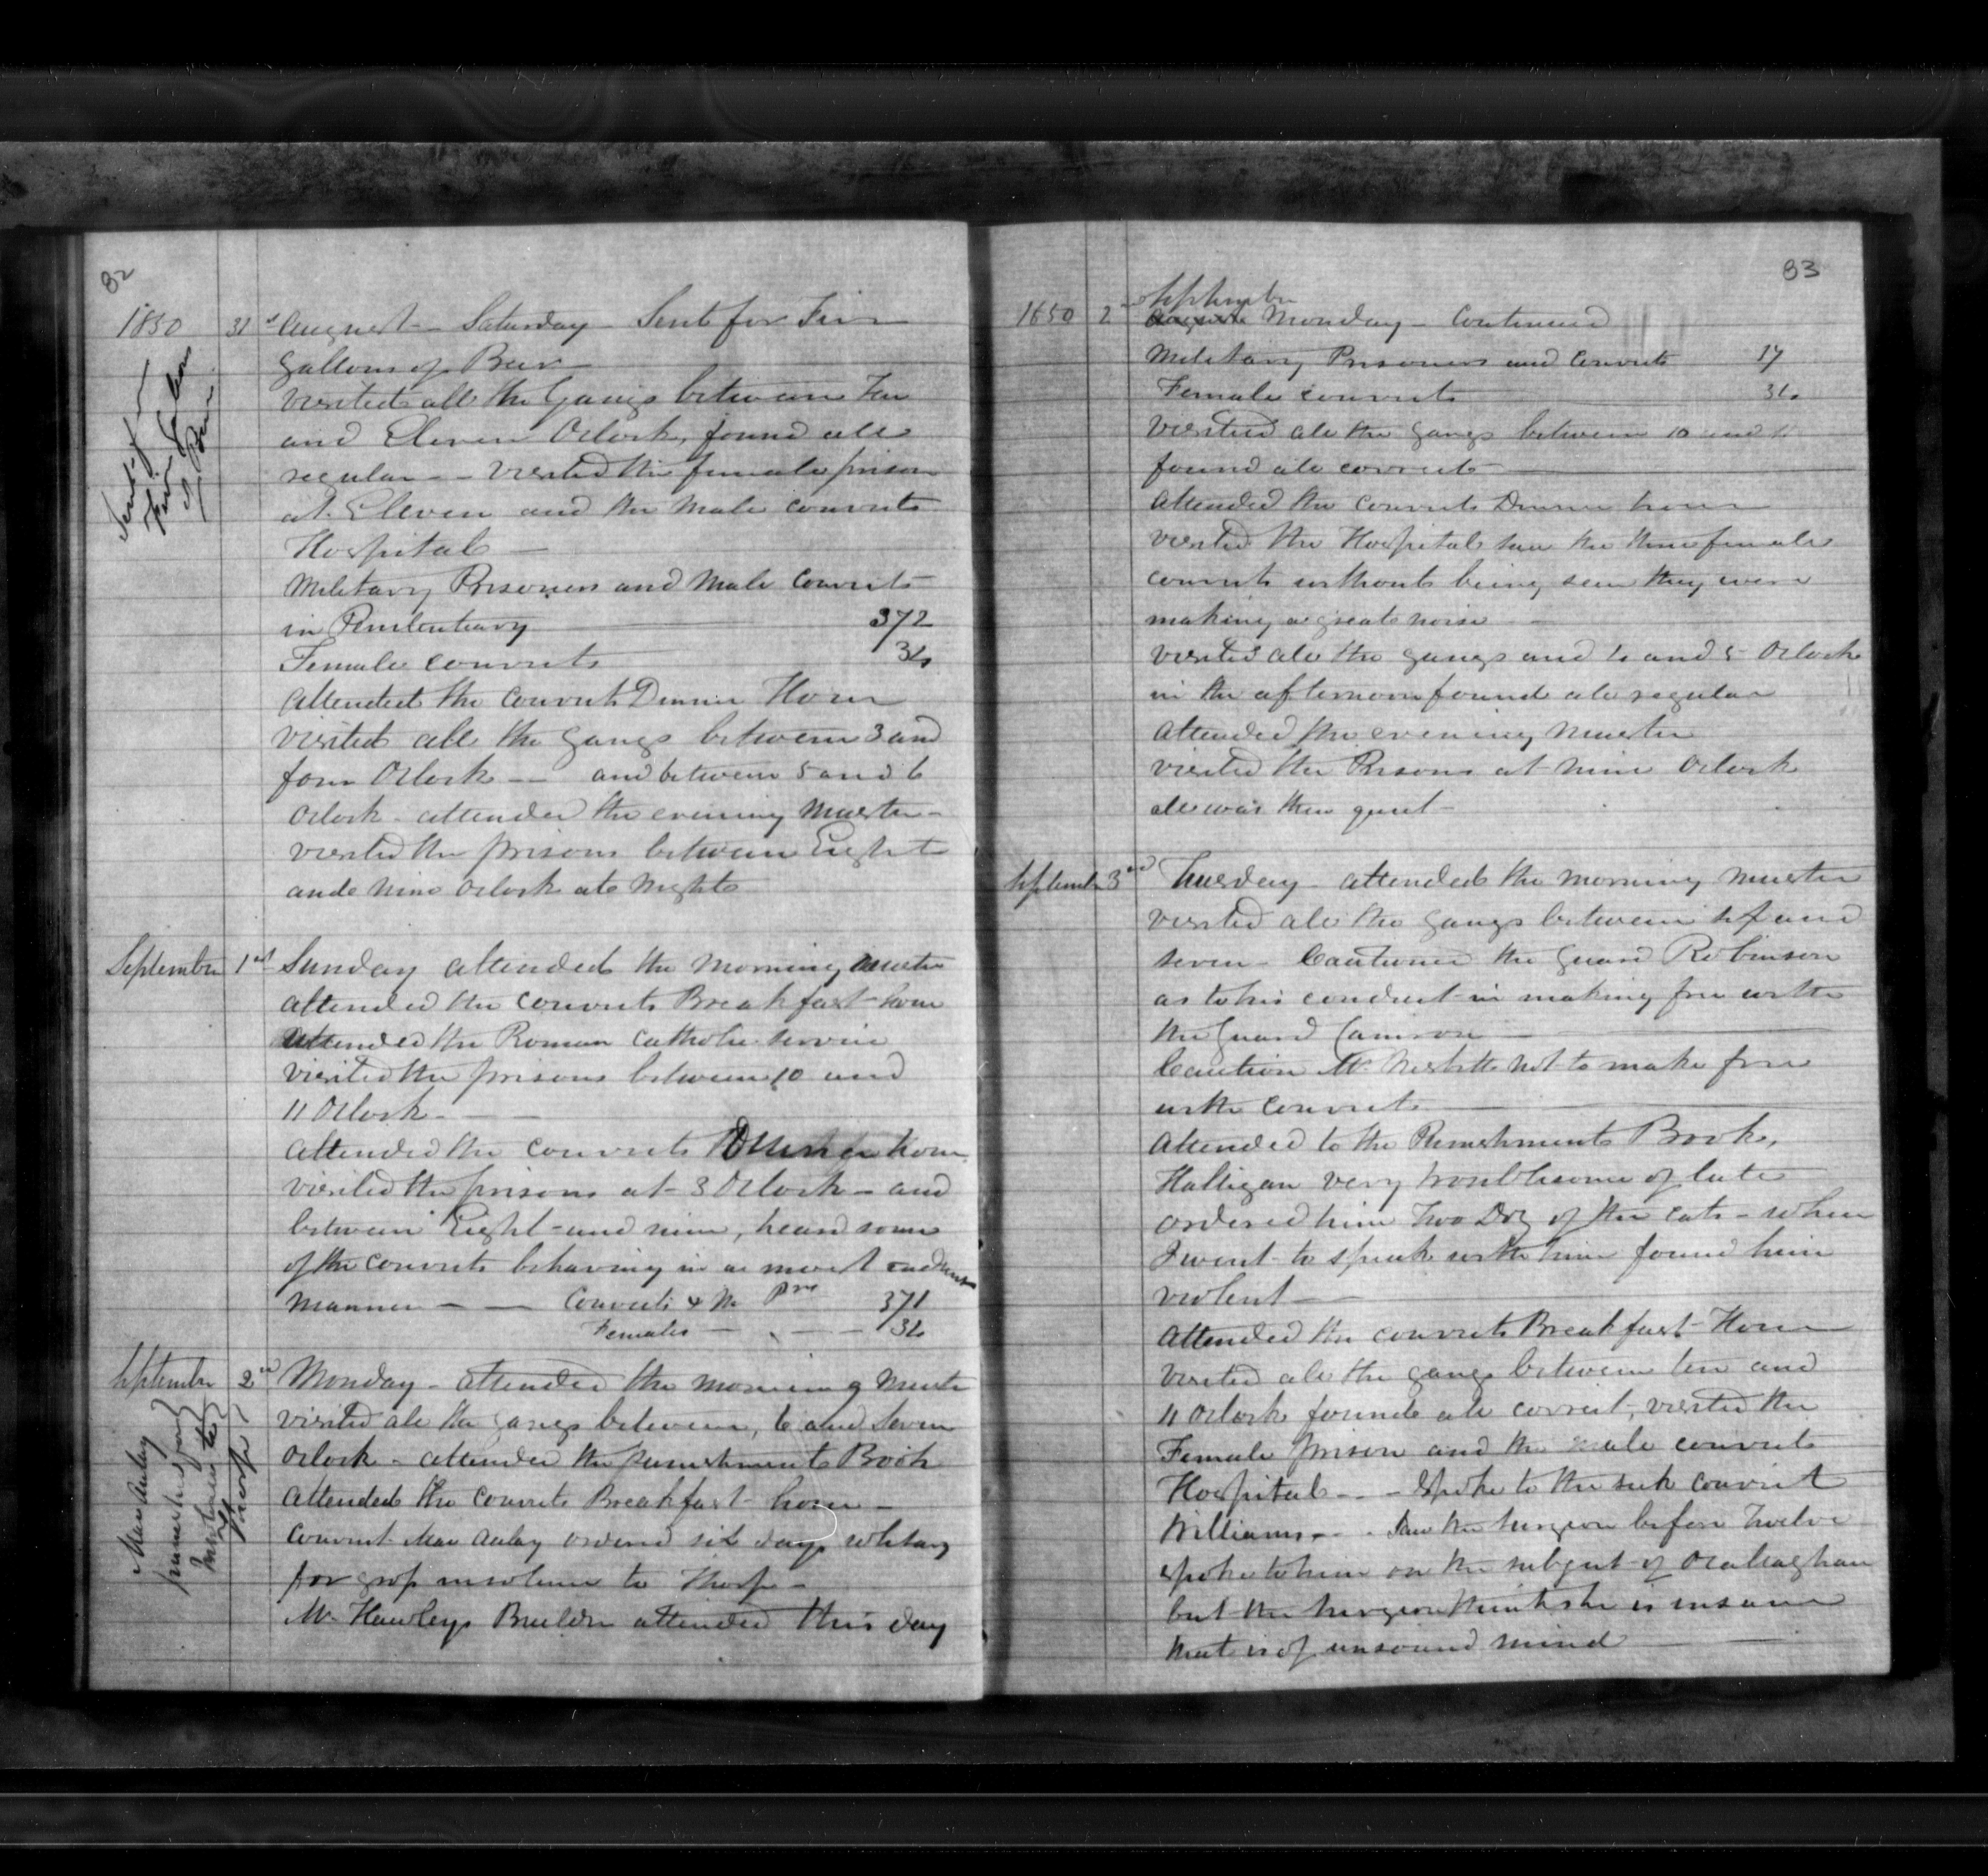 82
1850 31st August - Saturday - Sent for Five
gallons of Beer
Sent for
Five Gallons
of Beer
visited all the Gangs between Ten
and Eleven Oclock, found all
regular - - visited the female prison
at Eleven and the Male convicts
Hospital -
Military Prisoners and Male Convicts
in Penitentiary 372
Female convicts 34
attended the convicts Dinner Hour
visited all the gangs between 3 and
four Oclock - and between 5 and 6
Oclock - attended the evening Muster -
visited the prisons between Eight
and nine Oclock at Night
September 1st Sunday attended the Morning Muster
attended the convicts Breakfast hour
Attended the Roman Catholic service
visited the prisons between 10 and
11 Oclock -
attended the convicts Dinner hour
visited the prisons at 3 Oclock - and
between Eight and nine, heard some
of the convicts behaving in a most
manner - - Convicts & M Prs 371
Females - - - 34
September 2nd Monday - attended the morning Muster
visited all the gangs between, 6 and Seven
Oclock - attended the punishment Book
attended the convicts Breakfast hour -
convict MacAulay ordered six days solitary
for gross insolence to Thorp -
Mr Hawleys Builder attended this day
MacAulay
punished for
Insolence to
Thorp
83
September
1850 2nd August Monday - Continued
Military Prisoners and Convicts
Female convicts 34
Visited all the gangs between 10 and
found all correct
attended the convicts Dinner hour
visited the Hospital saw the three female
convicts without being seen they were
making a great noise -
visited all the gangs and 4 and 5 Oclock
in the afternoon found all regular
attended the evening Muster
visited the Prisons at nine Oclock
all was then quiet -
September 3rd Tuesday - attended the morning muster
visited all the gangs between and
seven - Cautioned the guard Robinson
as to his conduct in making free with
the guard Cameron -
Caution Mr not to make free
with convicts
attended to the Punishment Book,
Halligan very troublesome of late
ordered him Two Doz of the cats - when
I went to speak with him found him
violent -
attended the convicts Breakfast Hour
visited all the gangs between ten and
11 Oclock found all correct, visited the
Female prison and the male convicts
Hospital - - Spoke to the sick convict
Williams - . Saw the surgeon before Twelve
spoke to him on the subject of Ocallaghan
but the surgeon thinks she is insane
that is of unsound mind